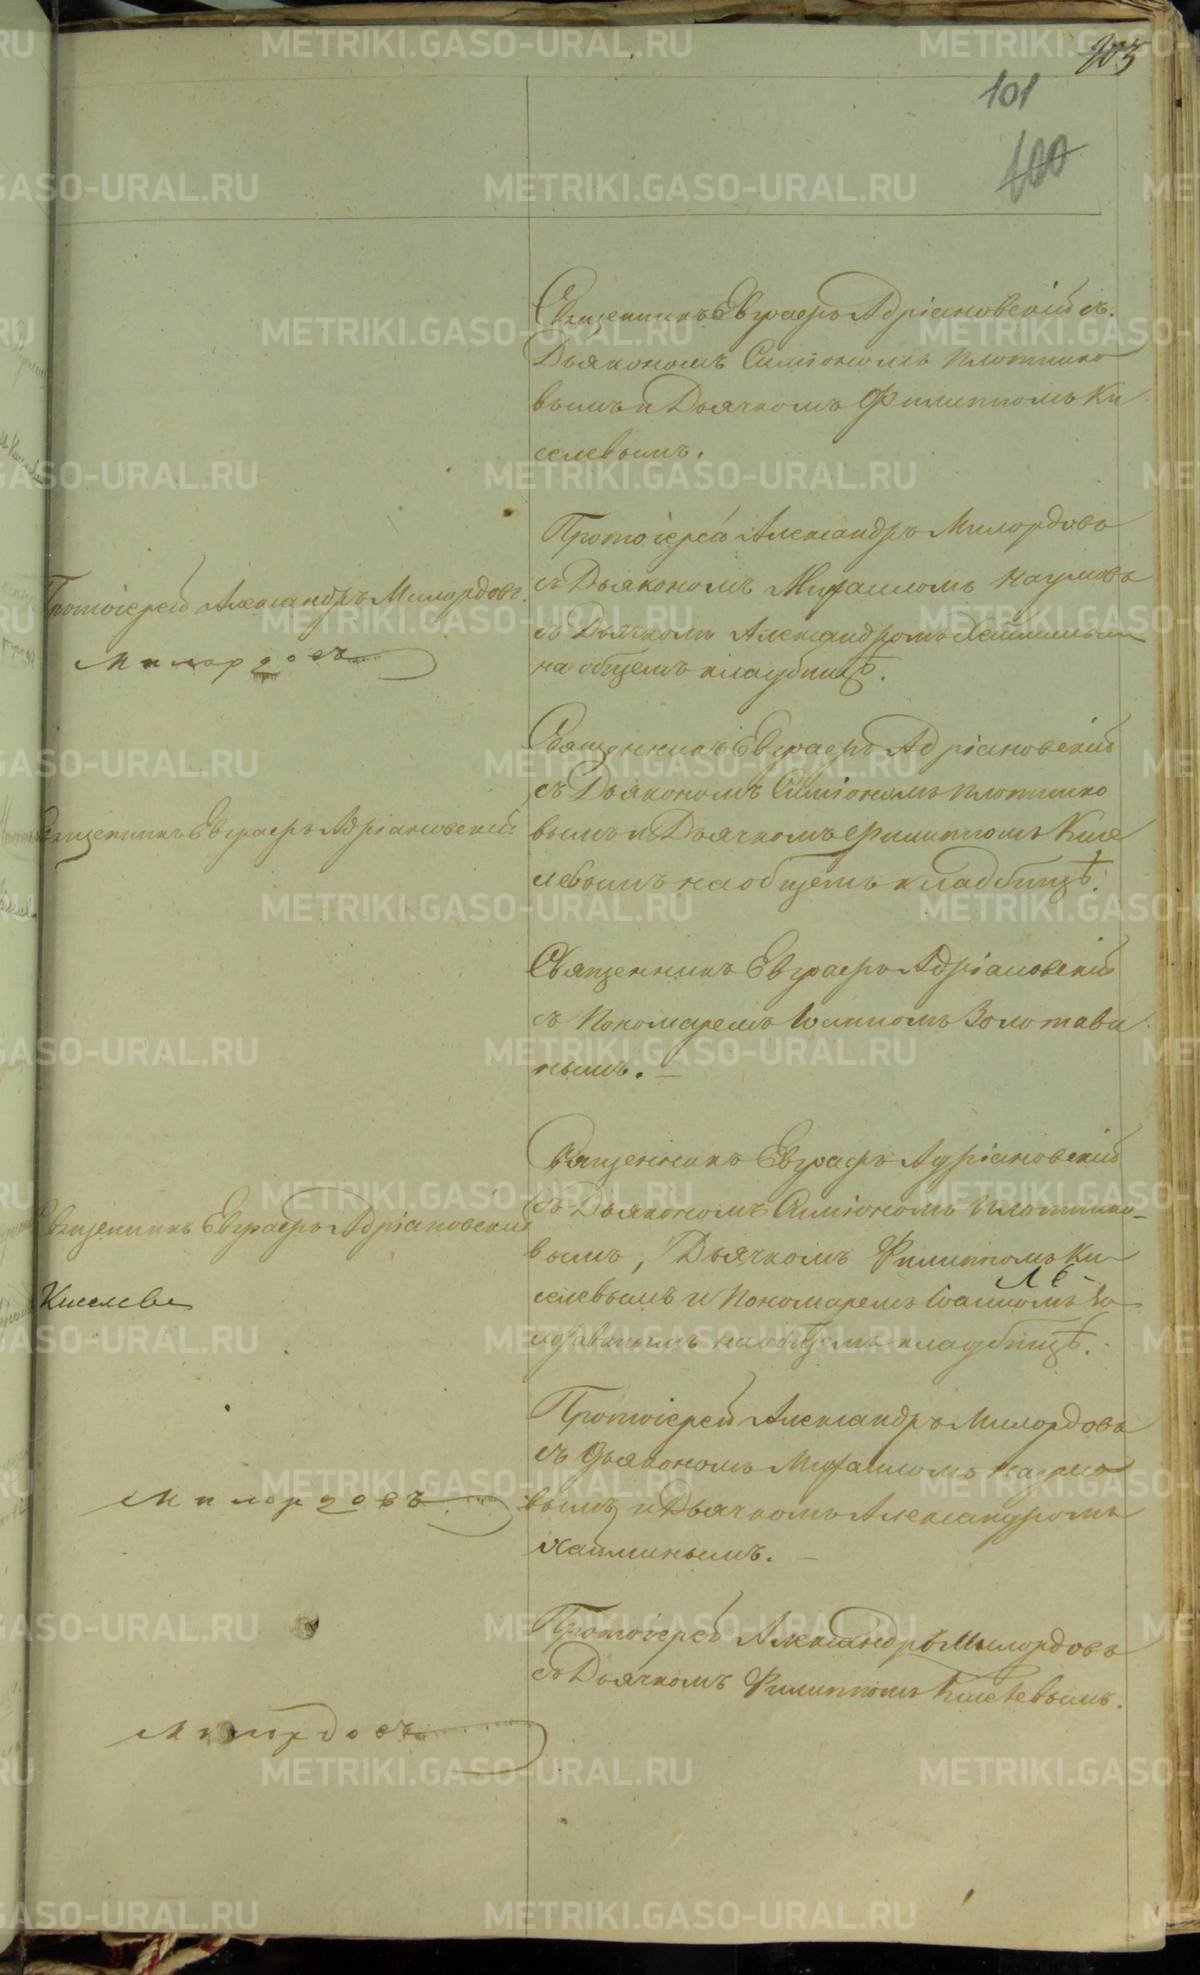 103
101
100
Священникъ Евграфъ Адріановскій съ
Дьякономъ Симіономъ Плотнико
вымъ и Дьячкомъ Филиппомъ Ки
селевымъ.
Протоіерей Александръ Милордовъ
съ Дьякономъ Михаиломъ Наумовъ
съ Дьячкомъ Александромъ
на общемъ кладбищѣ.
Протоіерей Александръ Милордовъ.
Милордовъ
Священникъ Евграфъ Адріановскій
съ Дьякономъ Симіономъ Плотнико
вымъ и Дьячкомъ Филиппомъ Кисе
левымъ на общемъ кладбищѣ.
Священникъ Евграфъ Адріановскій
Священникъ Евграфъ Адріановскій
съ Пономаремъ Іоанномъ Золотави
нымъ. —
Священникъ Евграфъ Адріановскій
съ Дьякономъ Симіономъ Плотнико-
вымъ, Дьячкомъ Филиппомъ Ки
селевымъ и Пономаремъ Іоанномъ Зо
на общемъ кладбищѣ.
Священникъ Евграфъ Адріановскій
Киселевъ
Протоіерей Александръ Милордовъ
съ Дьякономъ Михаиломъ Наумо
вымъ и Дьячкомъ Александромъ
Хайминымъ. —
Милордовъ
Протоіерей Александръ Милордовъ
съ Дьячкомъ Филиппомъ Киселевымъ.
Милордовъ
METRIKI.GASO-URAL.RU